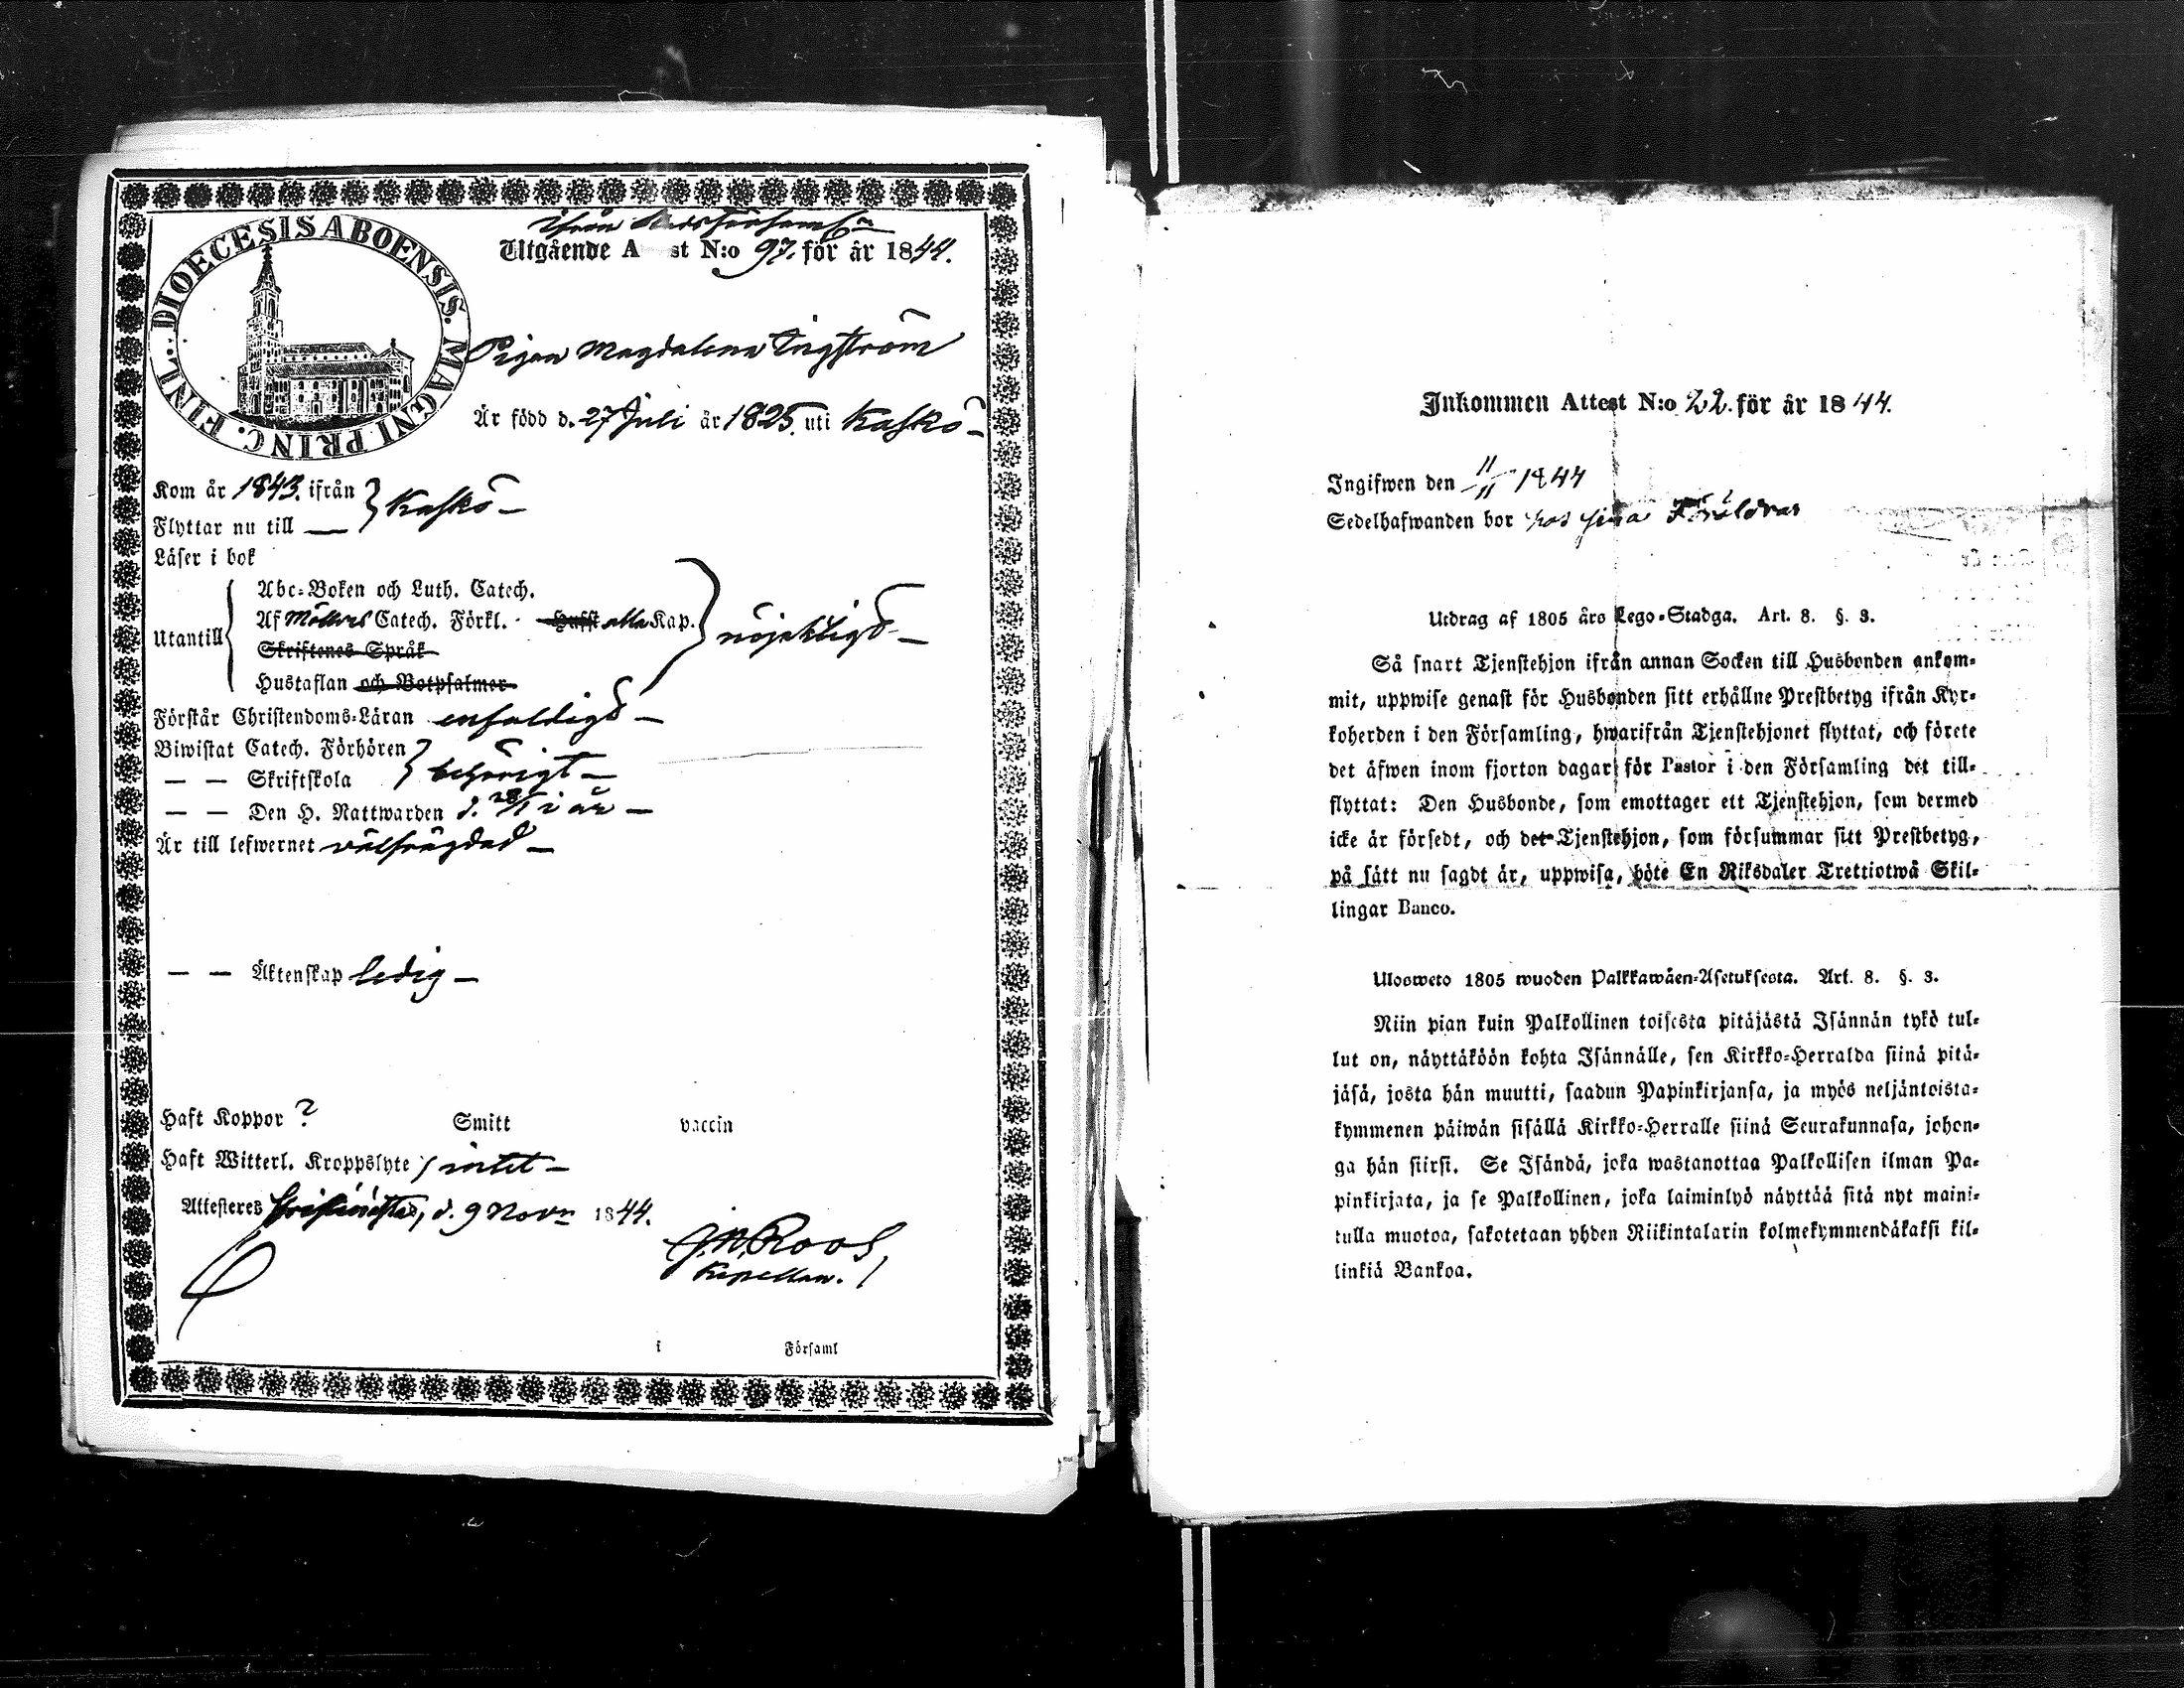 DIOECESIS ABOENSIS. MAGNI PRINC. FINL.
Ifrån
Utgående A st N:o 97. för år 1844.
Pigan Magdalena Engström
Är född d. 27 Juli år 1825. uti Kaskö
Kom år 1843. ifrån } Kaskö
Flyttar nu till —
Läser i bok
Utantill { Abc-Boken och Luth. Catech.
Af Möllers Catech. Förkl. alla Kap. } nöjaktigt
Skriftenes Språk
Hustaflan och Botpsalmer
Förstår Christendoms-Läran enfaldigt
Biwistat Catech. Förhören } behörigt
— — Skriftskola
— — Den H. Nattwarden d. i år
Är till lefwernet välfrägdad
— — Äktenskap ledig
Haft Koppor ? Smitt vaccin
Haft Witterl. Kroppslyte intet
Attesteres Christinestad, d. 9 Novr 1844.
J. N. Roos,
Kapellan.
i Församl
Inkommen Attest N:o 22. för år 1844.
Ingifwen den 11/11 1844
Sedelhafwanden bor hos sina Föräldrar
Utdrag af 1805 års Lego-Stadga. Art. 8. §. 3.
Så snart Tjenstehjon ifrån annan Socken till Husbonden ankom-
mit, uppwise genast för Husbonden sitt erhållne Prestbetyg ifrån Kyr-
koherden i den Församling, hwarifrån Tjenstehjonet flyttat, och förete
det äfwen inom fjorton dagar för Pastor i den Församling det till-
flyttat: Den Husbonde, som emottager ett Tjenstehjon, som dermed
icke är försedt, och det Tjenstehjon, som försummar sitt Prestbetyg,
på sätt nu sagdt är, uppwisa, böte En Riksdaler Trettiotwå Skil-
lingar Banco.
Ulosweto 1805 wuoden Palkkawäen-Asetuksesta. Art. 8. §. 3.
Niin pian kuin Palkollinen toisesta pitäjästä Isännän tykö tul-
lut on, näyttäköön kohta Isännälle, sen Kirkko-Herralda siinä pitä-
jäsä, josta hän muutti, saadun Papinkirjansa, ja myös neljäntoista-
kymmenen päiwän sisällä Kirkko-Herralle siinä Seurakunnasa, johon-
ga hän siirsi. Se Isändä, joka wastanottaa Palkollisen ilman Pa-
pinkirjata, ja se Palkollinen, joka laiminlyö näyttää sitä nyt maini-
tulla muotoa, sakotetaan yhden Riikintalarin kolmekymmendäkaksi kil-
linkiä Bankoa.